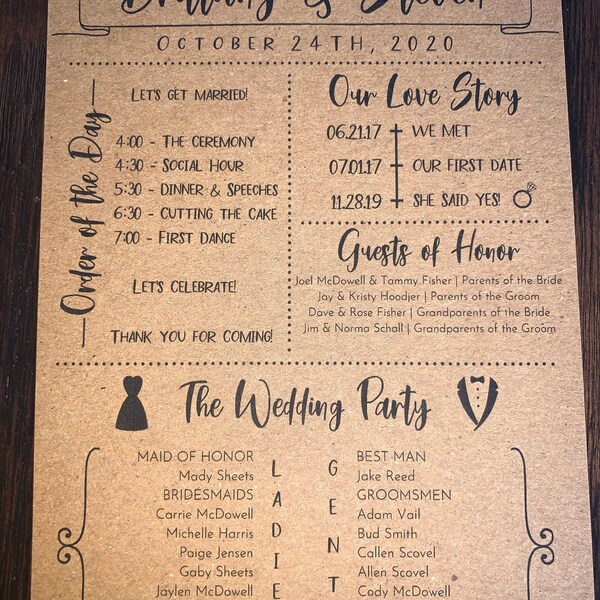 Brittany & Steven
OCTOBER 24TH, 2020
Order of the Day
LET'S GET MARRIED!
4:00 - THE CEREMONY
4:30 - SOCIAL HOUR
5:30 - DINNER & SPEECHES
6:30 - CUTTING THE CAKE
7:00 - FIRST DANCE
LET'S CELEBRATE!
THANK YOU FOR COMING!
Our Love Story
06.21.17 WE MET
07.01.17 OUR FIRST DATE
11.28.19 SHE SAID YES!
Guests of Honor
Joel McDowell & Tammy Fisher | Parents of the Bride
Jay & Kristy Hoodjer | Parents of the Groom
Dave & Rose Fisher | Grandparents of the Bride
Jim & Norma Schall | Grandparents of the Groom
The Wedding Party
MAID OF HONOR
Mady Sheets
BRIDESMAIDS
Carrie McDowell
Michelle Harris
Paige Jensen
Gaby Sheets
Jaylen McDowell
LADIE
GENT
BEST MAN
Jake Reed
GROOMSMEN
Adam Vail
Bud Smith
Callen Scovel
Allen Scovel
Cody McDowell